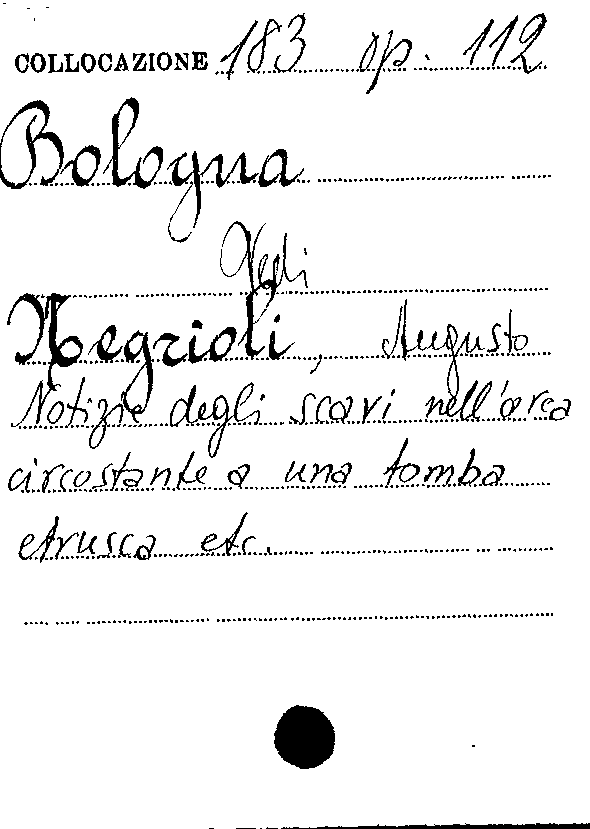 COLLOCAZIONE 183 op. 112
Bologna
Vedi
Negrioli, Augusto
Notizie degli scavi nell'area
circostante a una tomba
etrusca etc.